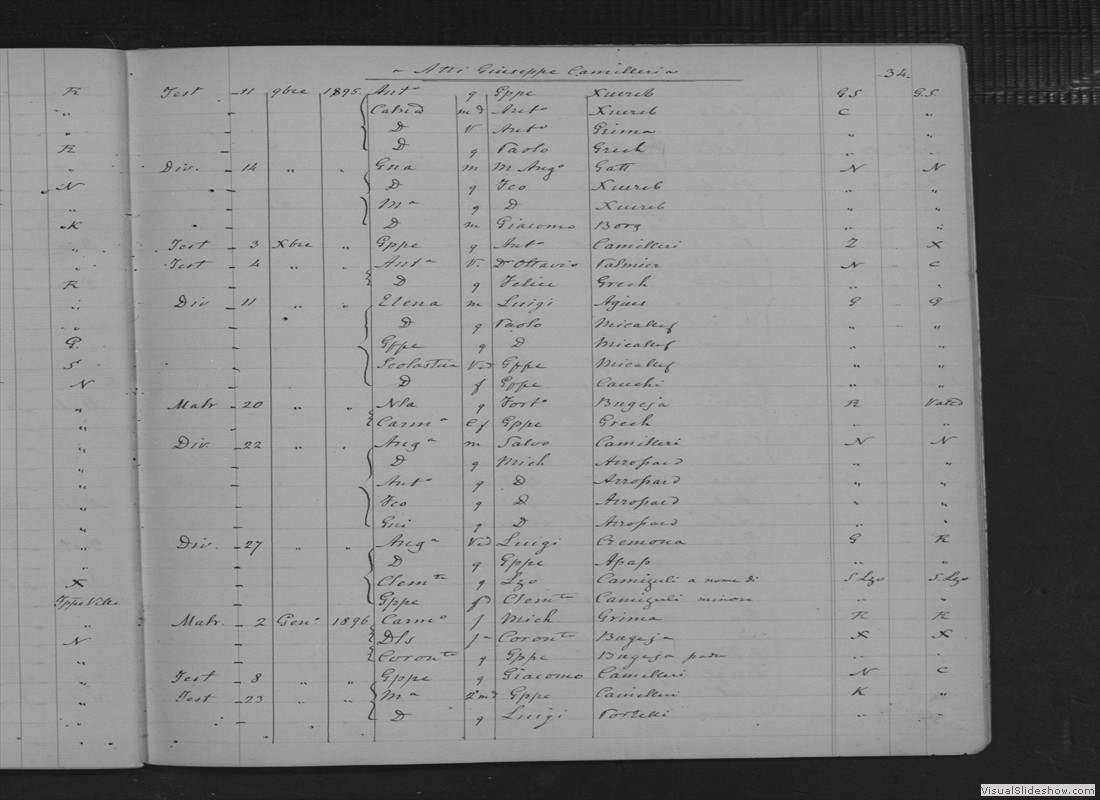 Atti Giuseppe Camilleri
34.
R Test 11 9bre 1895. Antº g Gppe Xuereb G.S G.S.
" Catnd md Antº Xuereb C "
" D V Antº Grima " "
R D g Paolo Grech " "
" Div. 14 " " Gna m M Angº Gatt N N
N D g Fco Xuereb " "
" Mª g D Xuereb " "
K D m Giacomo Borg " "
" Test 3 Xbre " Gppe g Antº Camilleri Z X
" Test 4 " " Antª V. Dr Ottavio N C
R D g Felice Grech " "
" Div 11 " " Elena m Luigi Agius G G
" D g Paolo Micallef " "
G. Gppe g D Micallef " "
S Scolastica Ved Gppe Micallef " "
N D f Gppe Cauchi " "
" Matr 20 " " Nla g Fortº Bugeja R
" Carmª Gppe Grech " "
" Div. 22 " " Angª m Salvo Camilleri N N
" D g Mich Azzopard " "
" Antº g D Azzopard " "
" Fco g D Azzopard " "
" Gni g D Azzopard " "
" Div. 27 " " Angª Ved Luigi Cremona G R
" D g Gppe Apap " "
X Clemte g Lzo Camizuli a nome di S Lzo S Lzo
Gppe Clemte Camizuli minore " "
" Matr. 2 Genº 1896 Carmº f Mich Grima R R
N Dls Coronto Bugeja X X
" Coronto g Gppe Bugeja padre " "
" Test 8 " " Gppe g Giacomo Camilleri N C
" Test 23 " " Mª 2 md Gppe Camilleri K "
" D g Luigi Portelli " "
VisualSlideshow.com